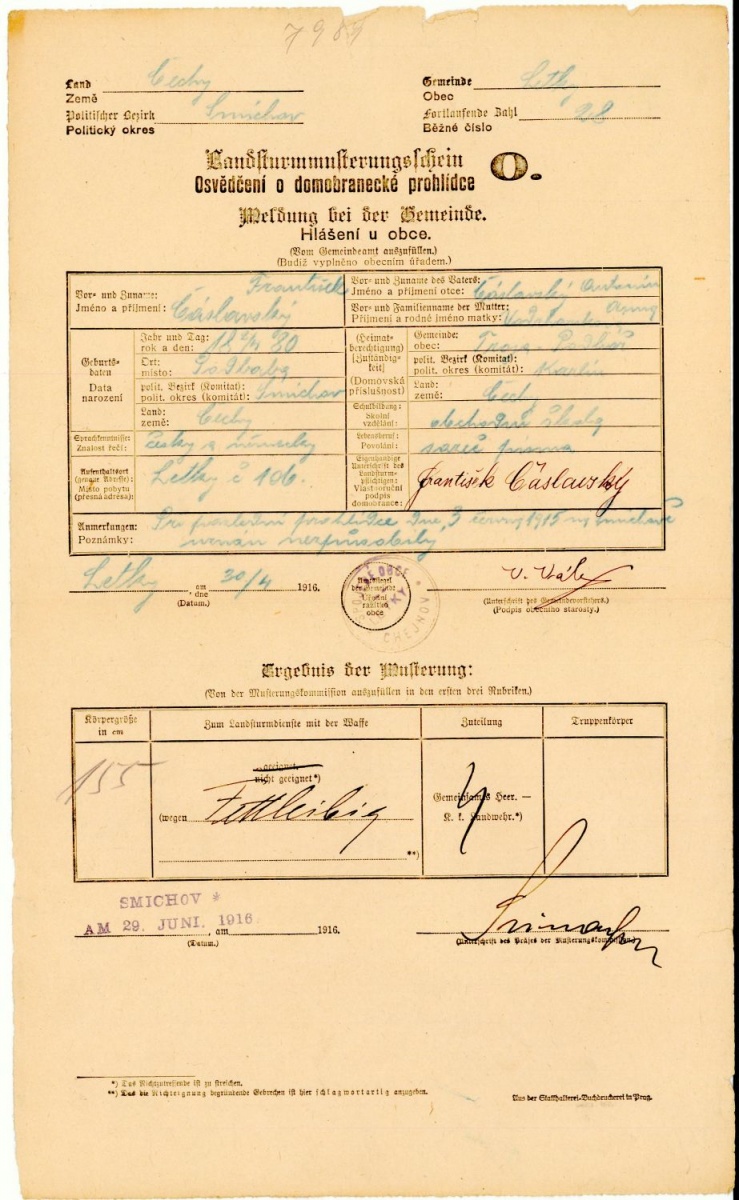 Land Čechy
Země
Politischer Bezirk Smíchov
Politický okres
Gemeinde Letky
Obec
Fortlaufende Zahl 28
Běžné číslo
Landsturmmusterungsschein O.
Osvědčení o domobranecké prohlídce
Meldung bei der Gemeinde.
Hlášení u obce.
(Vom Gemeindeamt auszufüllen.)
(Budiž vyplněno obecním úřadem.)
Vor- und Zuname: František
Jméno a příjmení: Čáslavský
Vor- und Zuname des Vaters:
Jméno a příjmení otce: Čáslavský Antonín
Vor- und Familienname der Mutter: Anna
Příjmení a rodné jméno matky:
Geburtsdaten
Data narození
Jahr und Tag:
rok a den:
Ort:
místo: Podbaba
polit. Bezirk (Komitat):
polit. okres (komitát): Smíchov
Land:
země: Čechy
(Heimatberechtigung)
[Zuständigkeit]
(Domovská příslušnost)
Gemeinde:
obec: Troja-Podhoř
polit. Bezirk (Komitat):
polit. okres (komitát): Karlín
Land:
země: Čechy
Schulbildung:
Školní vzdělání: obchodní škola
Sprachkenntnisse:
Znalost řečí: Česky a německy
Lebensberuf:
Povolání:
Aufenthaltsort
(genaue Adresse):
Místo pobytu
(přesná adresa): Letky č 106.
Eigenhändige
Unterschrift des
Landsturmpflichtigen:
Vlastnoruční
podpis
domobrance: František Čáslavský
Anmerkungen: Při poslední prohlídce dne 3 června 1915 na Smíchově
Poznámky: uznán nezpůsobilý
Letky am 30/4 1916.
dne
(Datum.)
Amtssiegel
der Gemeinde
Úřední
razítko
obce
(Unterschrift des Gemeindevorstehers.)
(Podpis obecního starosty.)
Ergebnis der Musterung:
(Von der Musterungskommission auszufüllen in den ersten drei Rubriken.)
Körpergröße
in cm
Zum Landsturmdienste mit der Waffe
Zuteilung
Truppenkörper
155
geeignet
nicht geeignet*)
(wegen Fettleibig
**)
Gemeinsames Heer. —
K. k. Landwehr.*)
SMICHOV *
AM 29. JUNI. 1916
, am 1916.
(Datum.)
(Unterschrift des Präses der Musterungskommission.)
*) Das Nichtzutreffende ist zu streichen.
**) Das die Nichteignung begründende Gebrechen ist hier schlagwortartig anzugeben.
Aus der Statthalterei-Buchdruckerei in Prag.